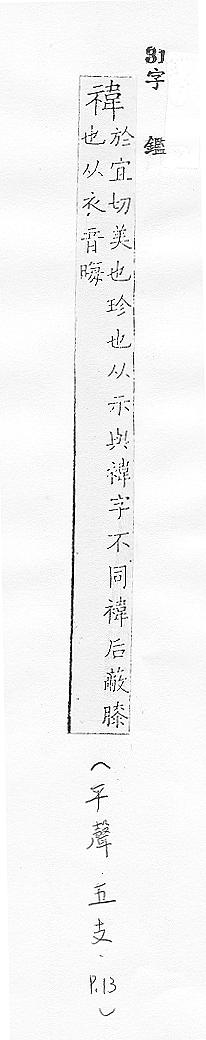 31字 鑑
禕
於宜切美也珍也从示與褘字不同褘后蔽膝
也从衣音暉
(平聲.五支.P.13)